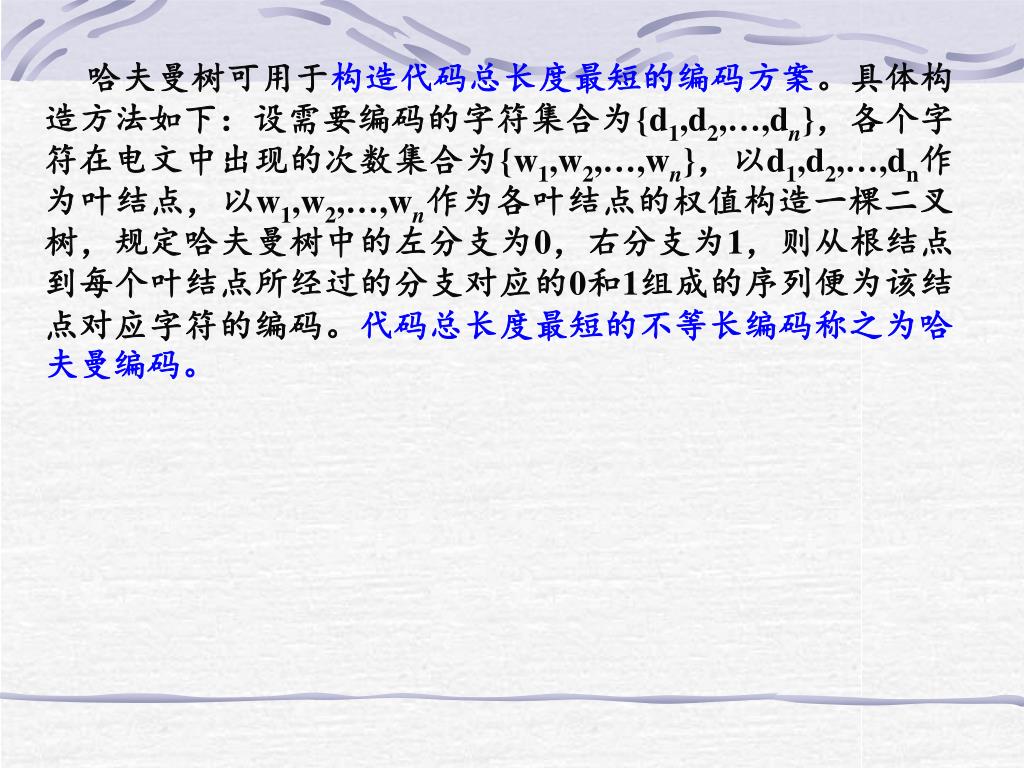 哈夫曼树可用于构造代码总长度最短的编码方案。具体构
造方法如下：设需要编码的字符集合为{d1,d2,…,dn}，各个字
符在电文中出现的次数集合为{w1,w2,…,wn}，以d1,d2,…,dn作
为叶结点，以w1,w2,…,wn作为各叶结点的权值构造一棵二叉
树，规定哈夫曼树中的左分支为0，右分支为1，则从根结点
到每个叶结点所经过的分支对应的0和1组成的序列便为该结
点对应字符的编码。代码总长度最短的不等长编码称之为哈
夫曼编码。